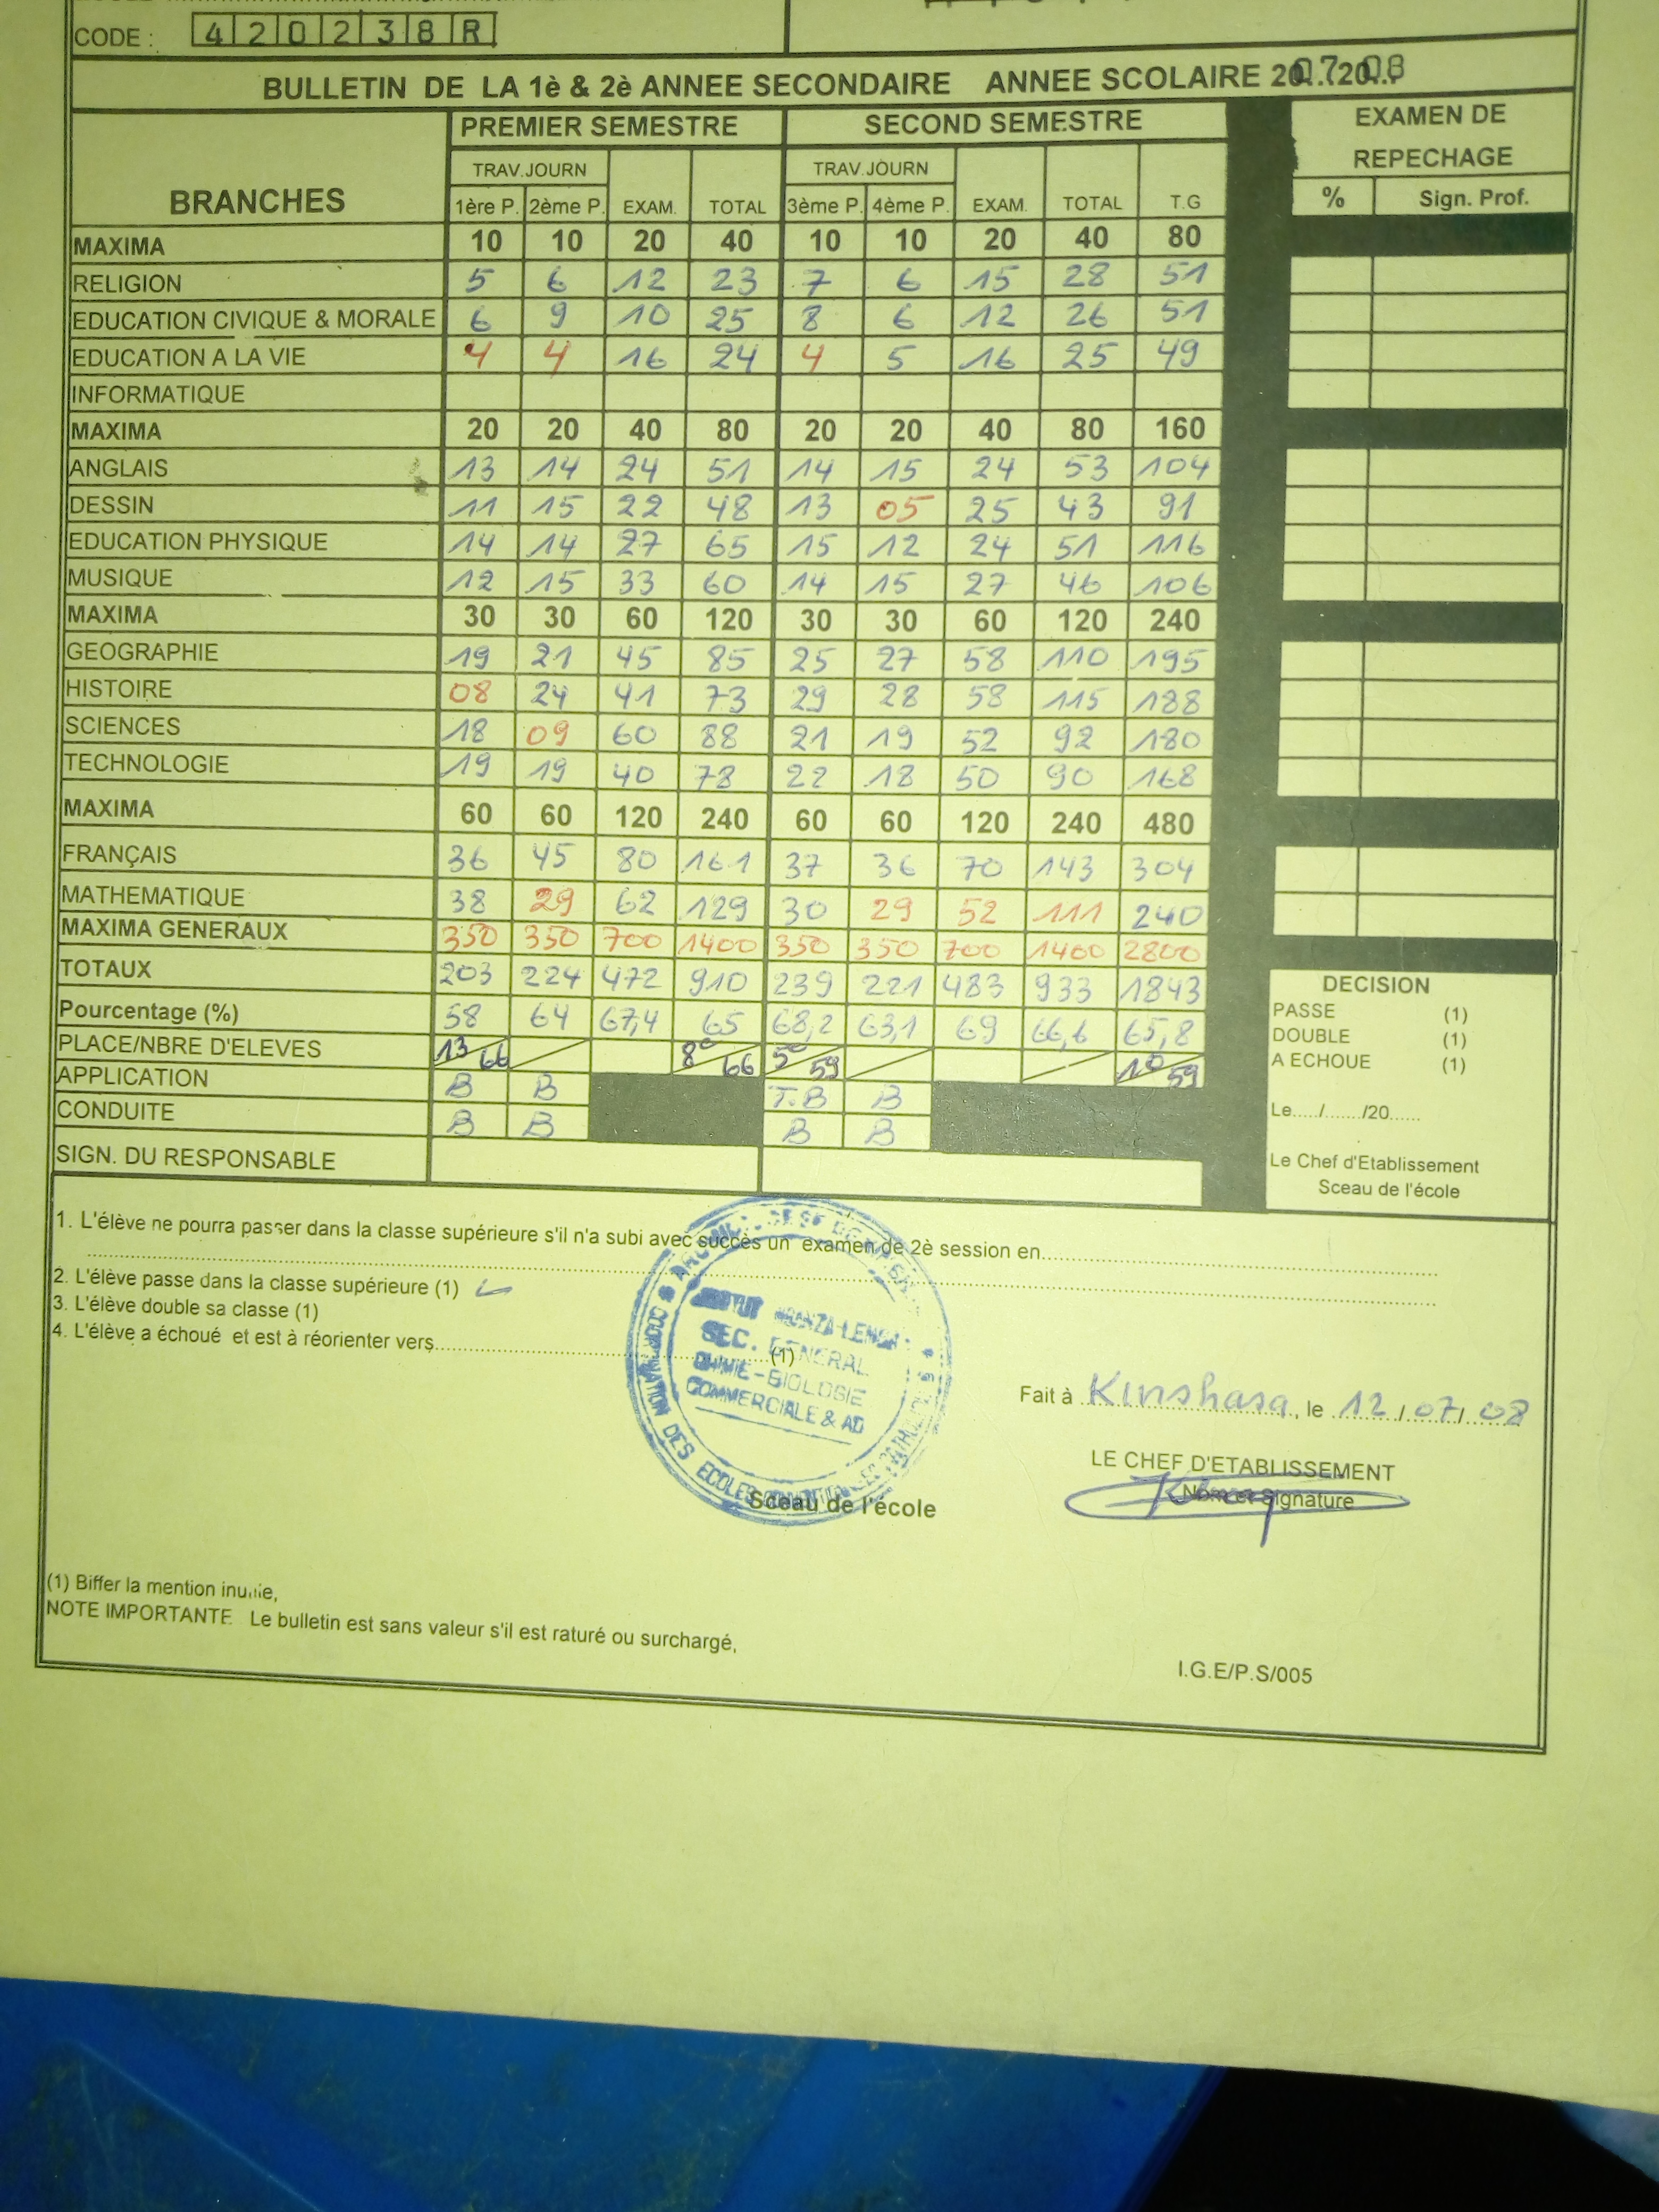 CODE : 4 2 0 2 3 8 R
BULLETIN DE LA 1è & 2è ANNEE SECONDAIRE ANNEE SCOLAIRE 2007.2008
BRANCHES PREMIER SEMESTRE SECOND SEMESTRE EXAMEN DE REPECHAGE
TRAV.JOURN TRAV.JOURN
1ère P. 2ème P. EXAM. TOTAL 3ème P. 4ème P. EXAM. TOTAL T.G % Sign. Prof.
MAXIMA 10 10 20 40 10 10 20 40 80
RELIGION 5 6 12 23 7 6 15 28 51
EDUCATION CIVIQUE & MORALE 6 9 10 25 8 6 12 26 51
EDUCATION A LA VIE 4 4 16 24 4 5 16 25 49
INFORMATIQUE
MAXIMA 20 20 40 80 20 20 40 80 160
ANGLAIS 13 14 24 51 14 15 24 53 104
DESSIN 11 15 22 48 13 05 25 43 91
EDUCATION PHYSIQUE 14 14 27 65 15 12 24 51 116
MUSIQUE 12 15 33 60 14 15 27 46 106
MAXIMA 30 30 60 120 30 30 60 120 240
GEOGRAPHIE 19 21 45 85 25 27 58 110 195
HISTOIRE 08 24 41 73 29 28 58 115 188
SCIENCES 18 09 60 88 21 19 52 92 180
TECHNOLOGIE 19 19 40 78 22 18 50 90 168
MAXIMA 60 60 120 240 60 60 120 240 480
FRANÇAIS 36 45 80 161 37 36 70 143 304
MATHEMATIQUE 38 29 62 129 30 29 52 111 240
MAXIMA GENERAUX 350 350 700 1400 350 350 700 1400 2800
TOTAUX 203 224 472 910 239 221 483 933 1843
Pourcentage (%) 58 64 67,4 65 68,2 63,1 69 66,6 65,8
PLACE/NBRE D'ELEVES 13/66 8e/66 5e/59 10/59
APPLICATION B B T.B B
CONDUITE B B B B
SIGN. DU RESPONSABLE
DECISION
PASSE (1)
DOUBLE (1)
A ECHOUE (1)
Le...../......./20......
Le Chef d'Etablissement
Sceau de l'école
1. L'élève ne pourra passer dans la classe supérieure s'il n'a subi avec succès un examen de 2è session en
2. L'élève passe dans la classe supérieure (1)
3. L'élève double sa classe (1)
4. L'élève a échoué et est à réorienter vers (1)
SEC. GENERAL
CHIMIE - BIOLOGIE
COMMERCIALE & AD
COORDINATION DES ECOLES
Fait à Kinshasa, le 12/07/08
LE CHEF D'ETABLISSEMENT
Nom et Signature
Sceau de l'école
(1) Biffer la mention inutile,
NOTE IMPORTANTE Le bulletin est sans valeur s'il est raturé ou surchargé,
I.G.E/P.S/005